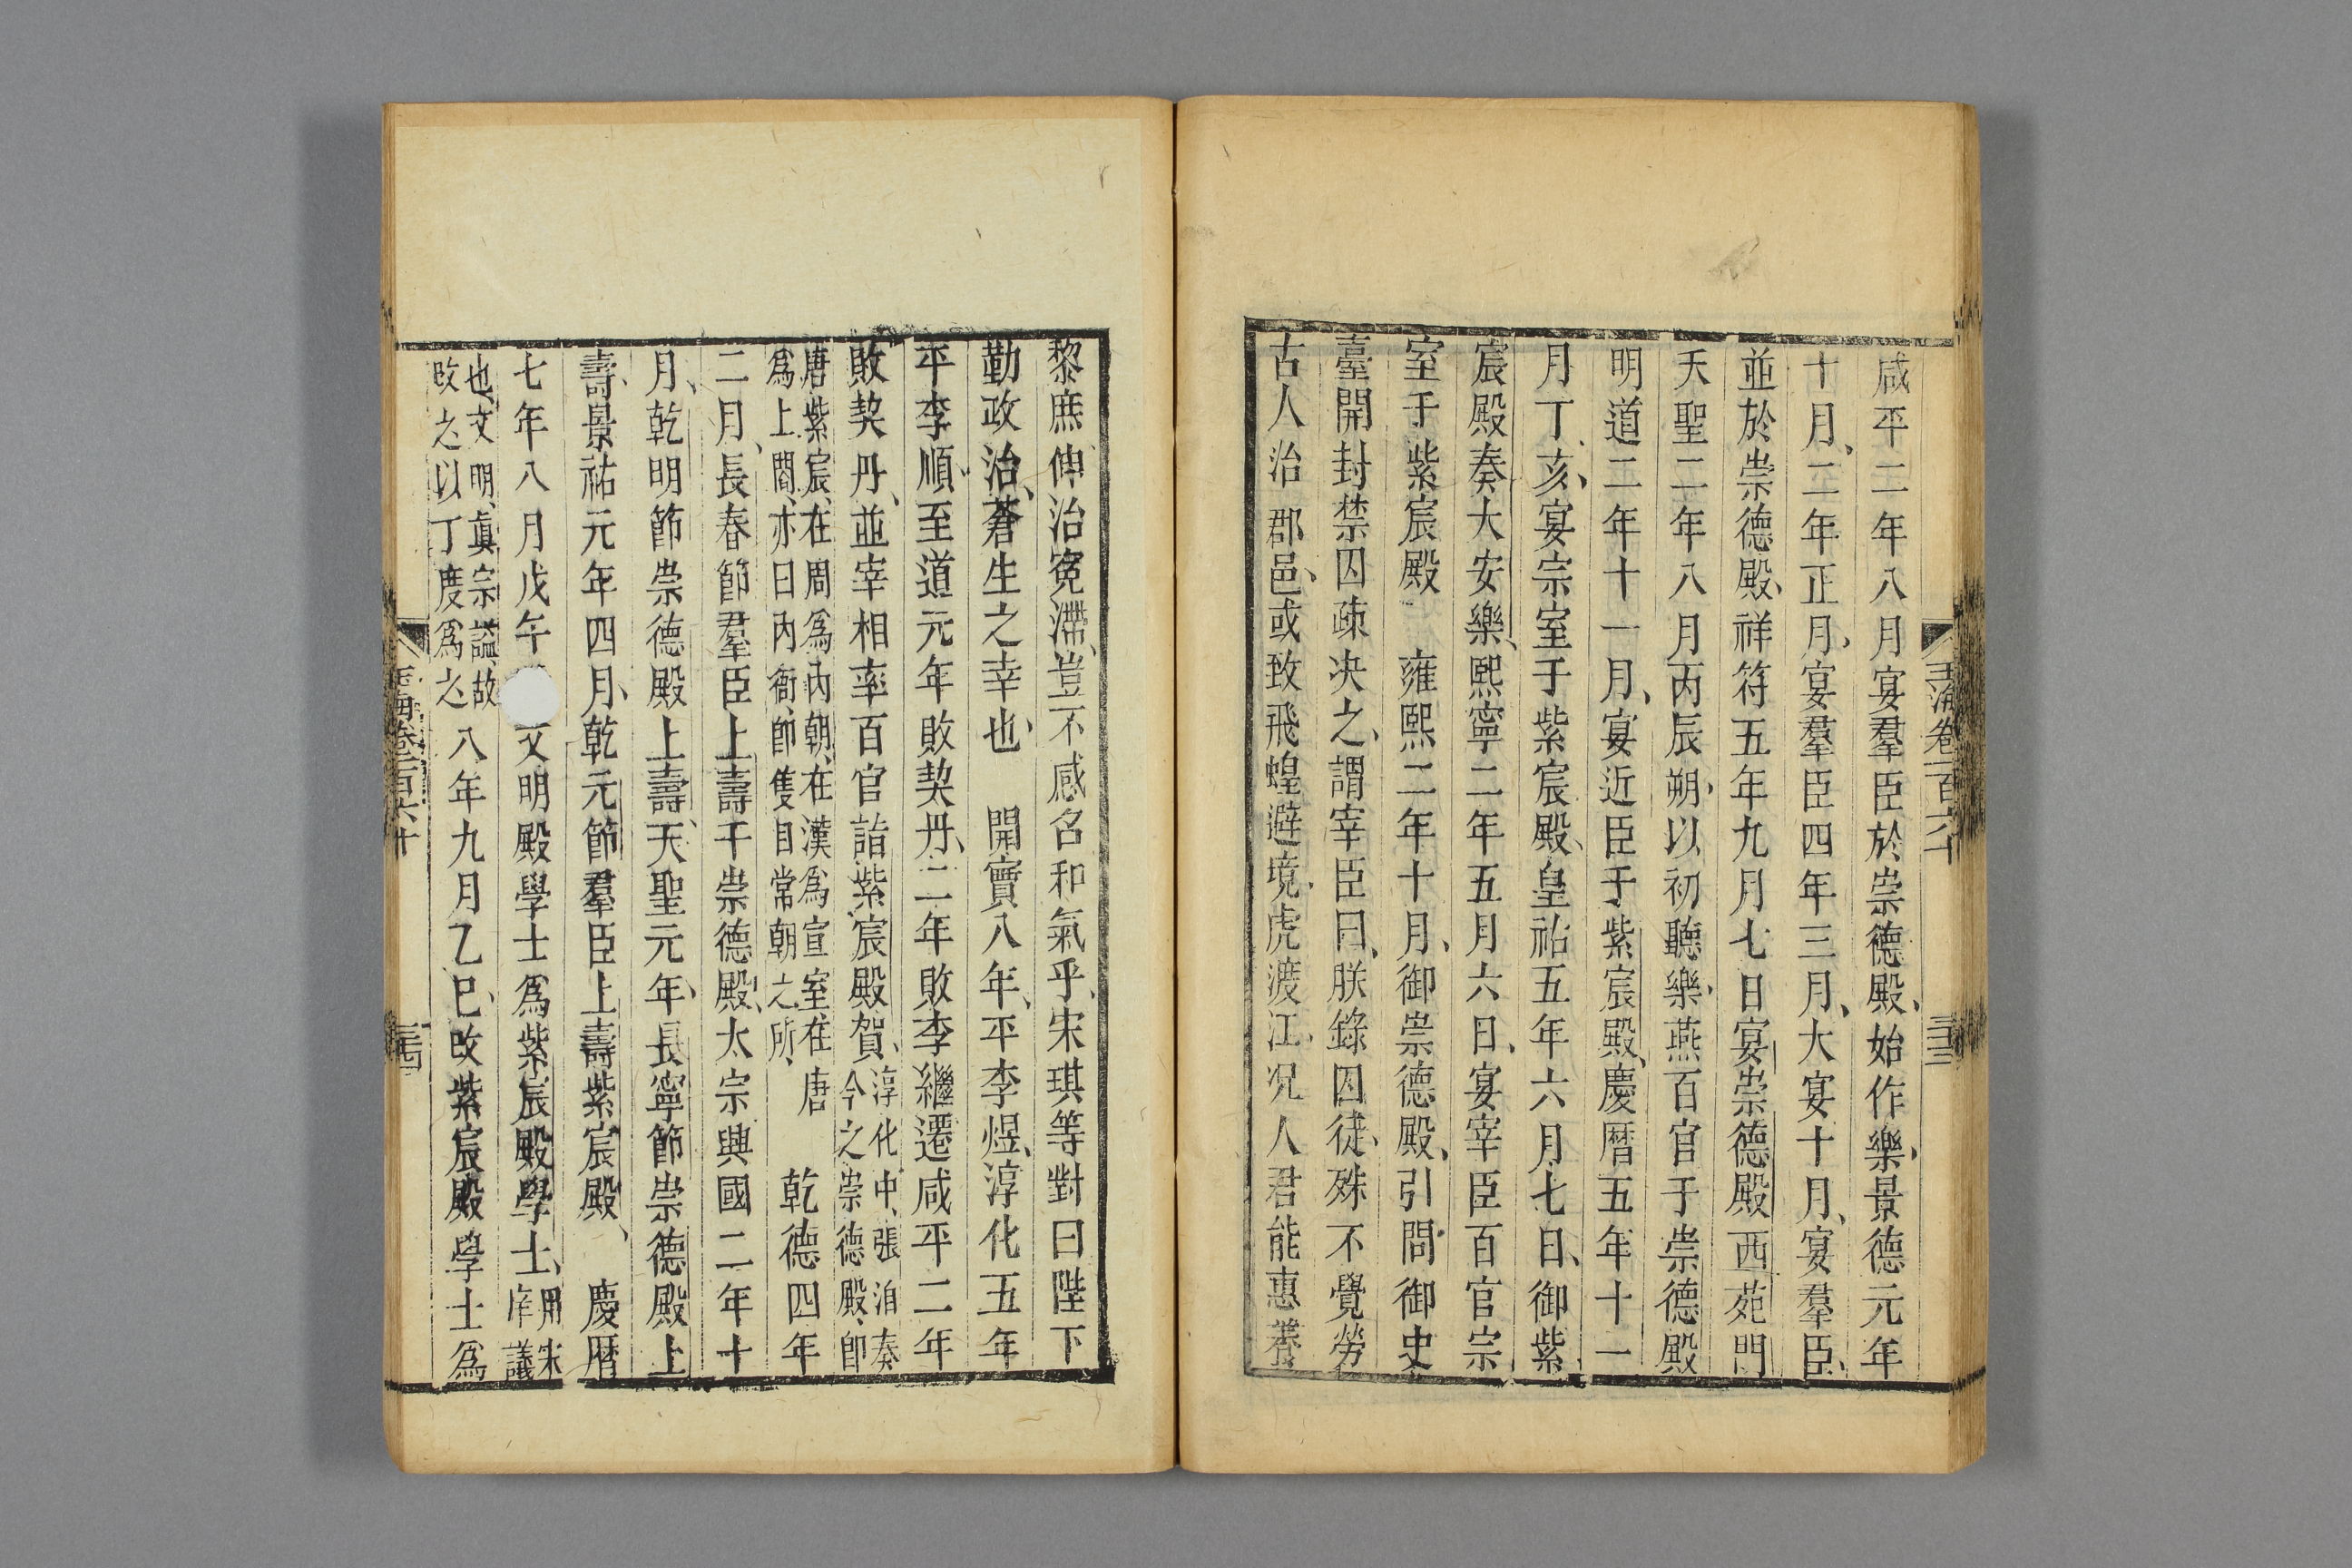 玉海卷一百六十
三十三
咸平二年八月宴羣臣於崇德殿、始作樂、景德元年
十月、二年正月、宴羣臣四年三月、大宴十月、宴羣臣、
並於崇德殿、祥符五年九月七日宴崇德殿西苑門
天聖二年八月丙辰朔、以初聽樂、燕百官于崇德殿
明道二年十一月、宴近臣于紫宸殿、慶曆五年十一
月丁亥、宴宗室于紫宸殿、皇祐五年六月七日、御紫
宸殿奏大安樂、熙寧二年五月六日、宴宰臣百官宗
室于紫宸殿 雍熙二年十月、御崇德殿、引問御史
臺開封禁囚疎决之、謂宰臣曰、朕錄囚徒、殊不覺勞
古人治郡邑、或致飛蝗避境、虎渡江、况人君能惠養
黎庶伸治寃滯、豈不感召和氣乎、宋琪等對曰陛下
勤政治、蒼生之幸也 開寶八年、平李煜、淳化五年
平李順、至道元年敗契丹、二年敗李繼遷咸平二年
敗契丹、並宰相率百官詣紫宸殿賀、淳化中、張洎奏
今之崇德殿、即
唐紫宸、在周爲內朝、在漢爲宣室在唐
爲上閤、亦曰內衙、即隻日常朝之所、 乾德四年
二月、長春節羣臣上壽于崇德殿、太宗興國二年十
月、乾明節崇德殿上壽、天聖元年、長寧節崇德殿上
壽、景祐元年四月、乾元節羣臣上壽紫宸殿、 慶曆
七年八月戊午文明殿學士爲紫宸殿學士、用宋
庠議
也、文明、真宗謚、故
改之以丁度爲之 八年九月乙巳、改紫宸殿學士爲
玉海卷一百六十
三十四